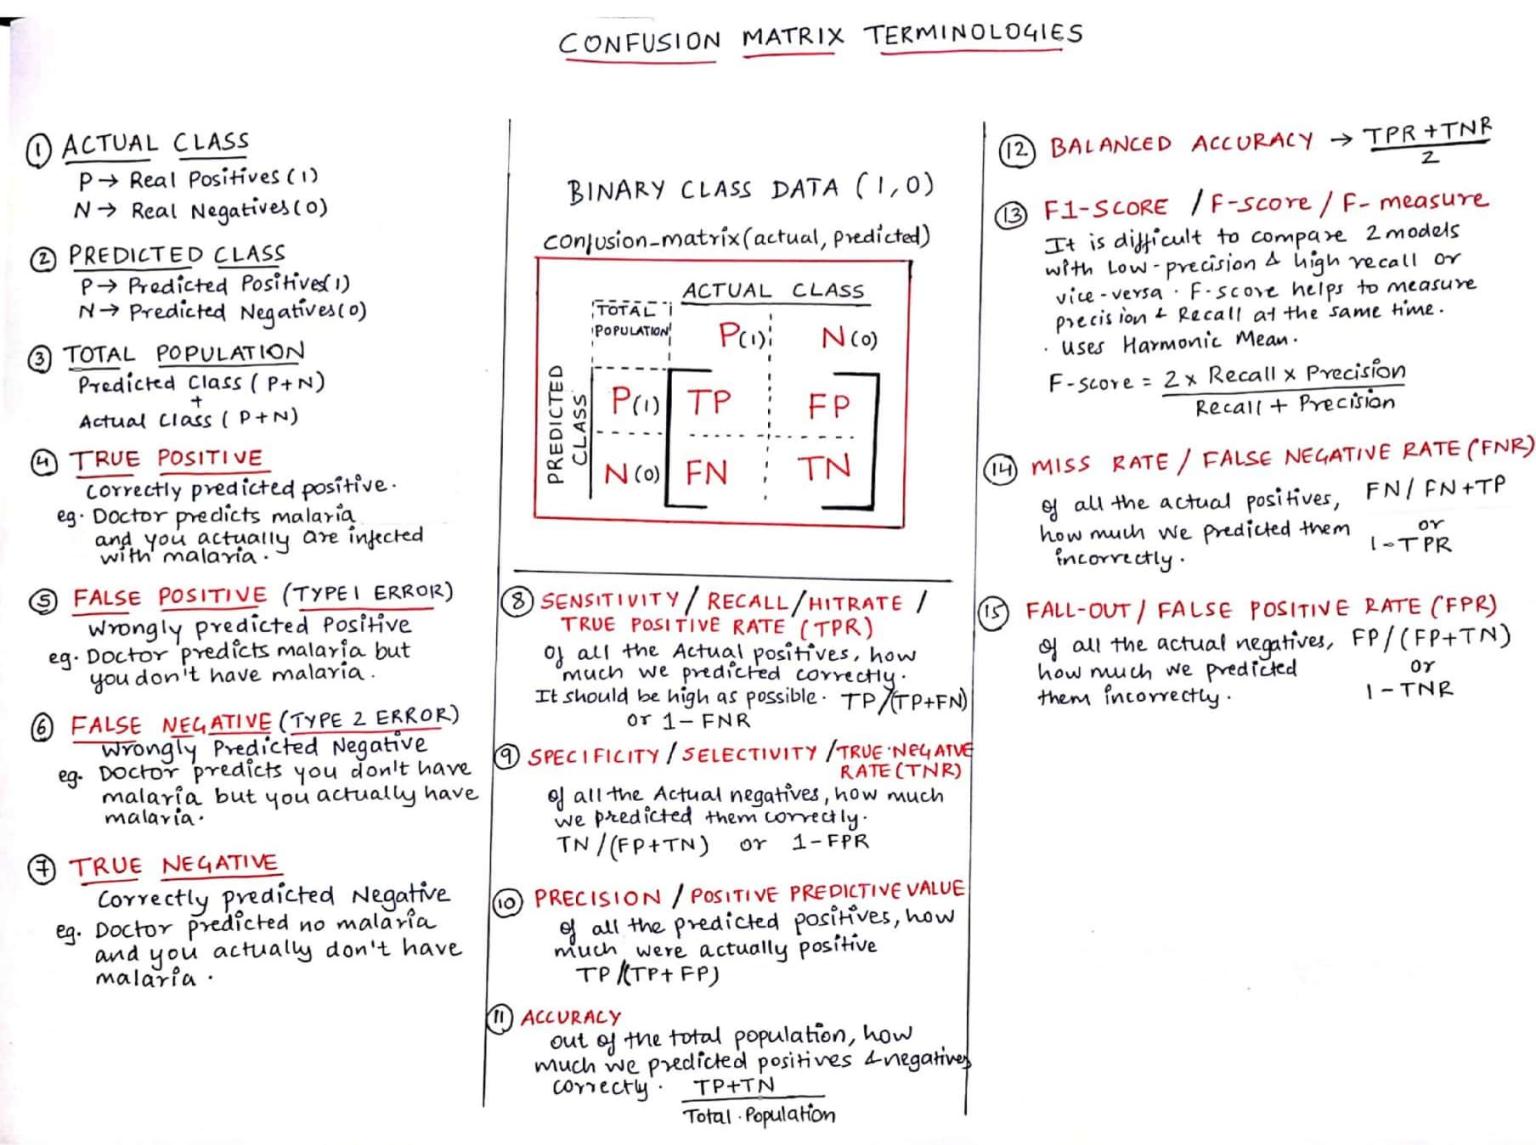 CONFUSION MATRIX TERMINOLOGIES
① ACTUAL CLASS
P → Real Positives (1)
N → Real Negatives (0)
② PREDICTED CLASS
P → Predicted Positives(1)
N → Predicted Negatives(0)
③ TOTAL POPULATION
Predicted Class (P+N)
+
Actual Class (P+N)
④ TRUE POSITIVE
Correctly predicted positive.
eg. Doctor predicts malaria
and you actually are infected
with malaria.
⑤ FALSE POSITIVE (TYPE 1 ERROR)
Wrongly predicted Positive
eg. Doctor predicts malaria but
you don't have malaria.
⑥ FALSE NEGATIVE (TYPE 2 ERROR)
Wrongly Predicted Negative
eg. Doctor predicts you don't have
malaria but you actually have
malaria.
⑦ TRUE NEGATIVE
Correctly predicted Negative
eg. Doctor predicted no malaria
and you actually don't have
malaria.
BINARY CLASS DATA (1,0)
confusion-matrix(actual, predicted)
ACTUAL CLASS
TOTAL
POPULATION
P(1) N(0)
PREDICTED
CLASS
P(1) TP FP
N(0) FN TN
⑧ SENSITIVITY / RECALL / HITRATE /
TRUE POSITIVE RATE (TPR)
Of all the Actual positives, how
much we predicted correctly.
It should be high as possible. TP/(TP+FN)
or 1-FNR
⑨ SPECIFICITY / SELECTIVITY / TRUE NEGATIVE
RATE (TNR)
Of all the Actual negatives, how much
we predicted them correctly.
TN/(FP+TN) or 1-FPR
⑩ PRECISION / POSITIVE PREDICTIVE VALUE
Of all the predicted positives, how
much were actually positive
TP/(TP+FP)
⑪ ACCURACY
out of the total population, how
much we predicted positives & negatives
correctly. TP+TN
Total Population
⑫ BALANCED ACCURACY → TPR+TNR
2
⑬ F1-SCORE / F-score / F-measure
It is difficult to compare 2 models
with Low-precision & high recall or
vice-versa. F-score helps to measure
precision & Recall at the same time.
. Uses Harmonic Mean.
F-score = 2 x Recall x Precision
Recall + Precision
⑭ MISS RATE / FALSE NEGATIVE RATE (FNR)
Of all the actual positives, FN/FN+TP
how much we predicted them or
incorrectly. 1-TPR
⑮ FALL-OUT / FALSE POSITIVE RATE (FPR)
Of all the actual negatives, FP/(FP+TN)
how much we predicted or
them incorrectly. 1-TNR